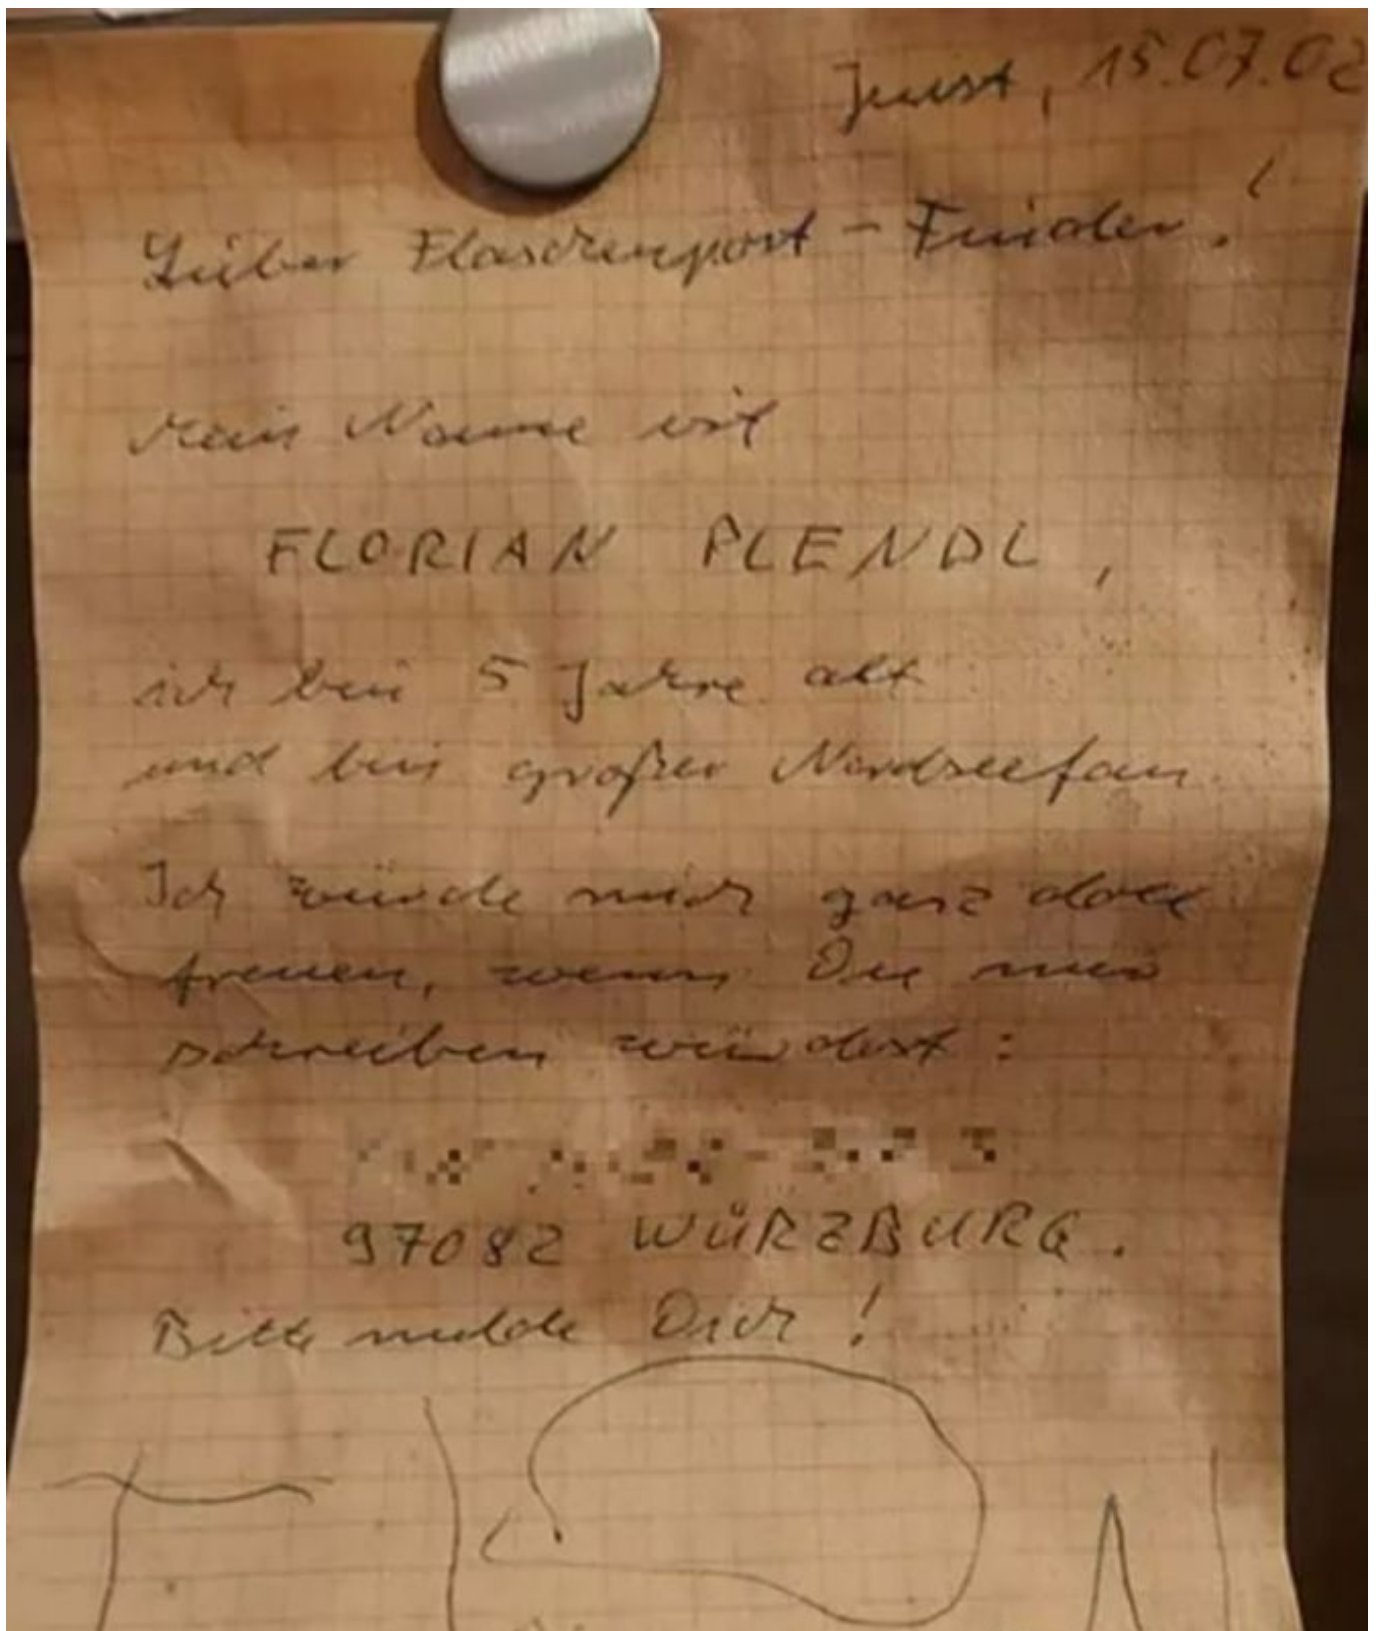 Juist, 15.07.02
Lieber Flaschenpost - Finder!
Mein Name ist
FLORIAN PLENDL,
ich bin 5 Jahre alt
und bin großer Nordseefan.
Ich würde mich ganz doll
freuen, wenn Du mir
schreiben würdest:
97082 WÜRZBURG.
Bitte melde Dich!